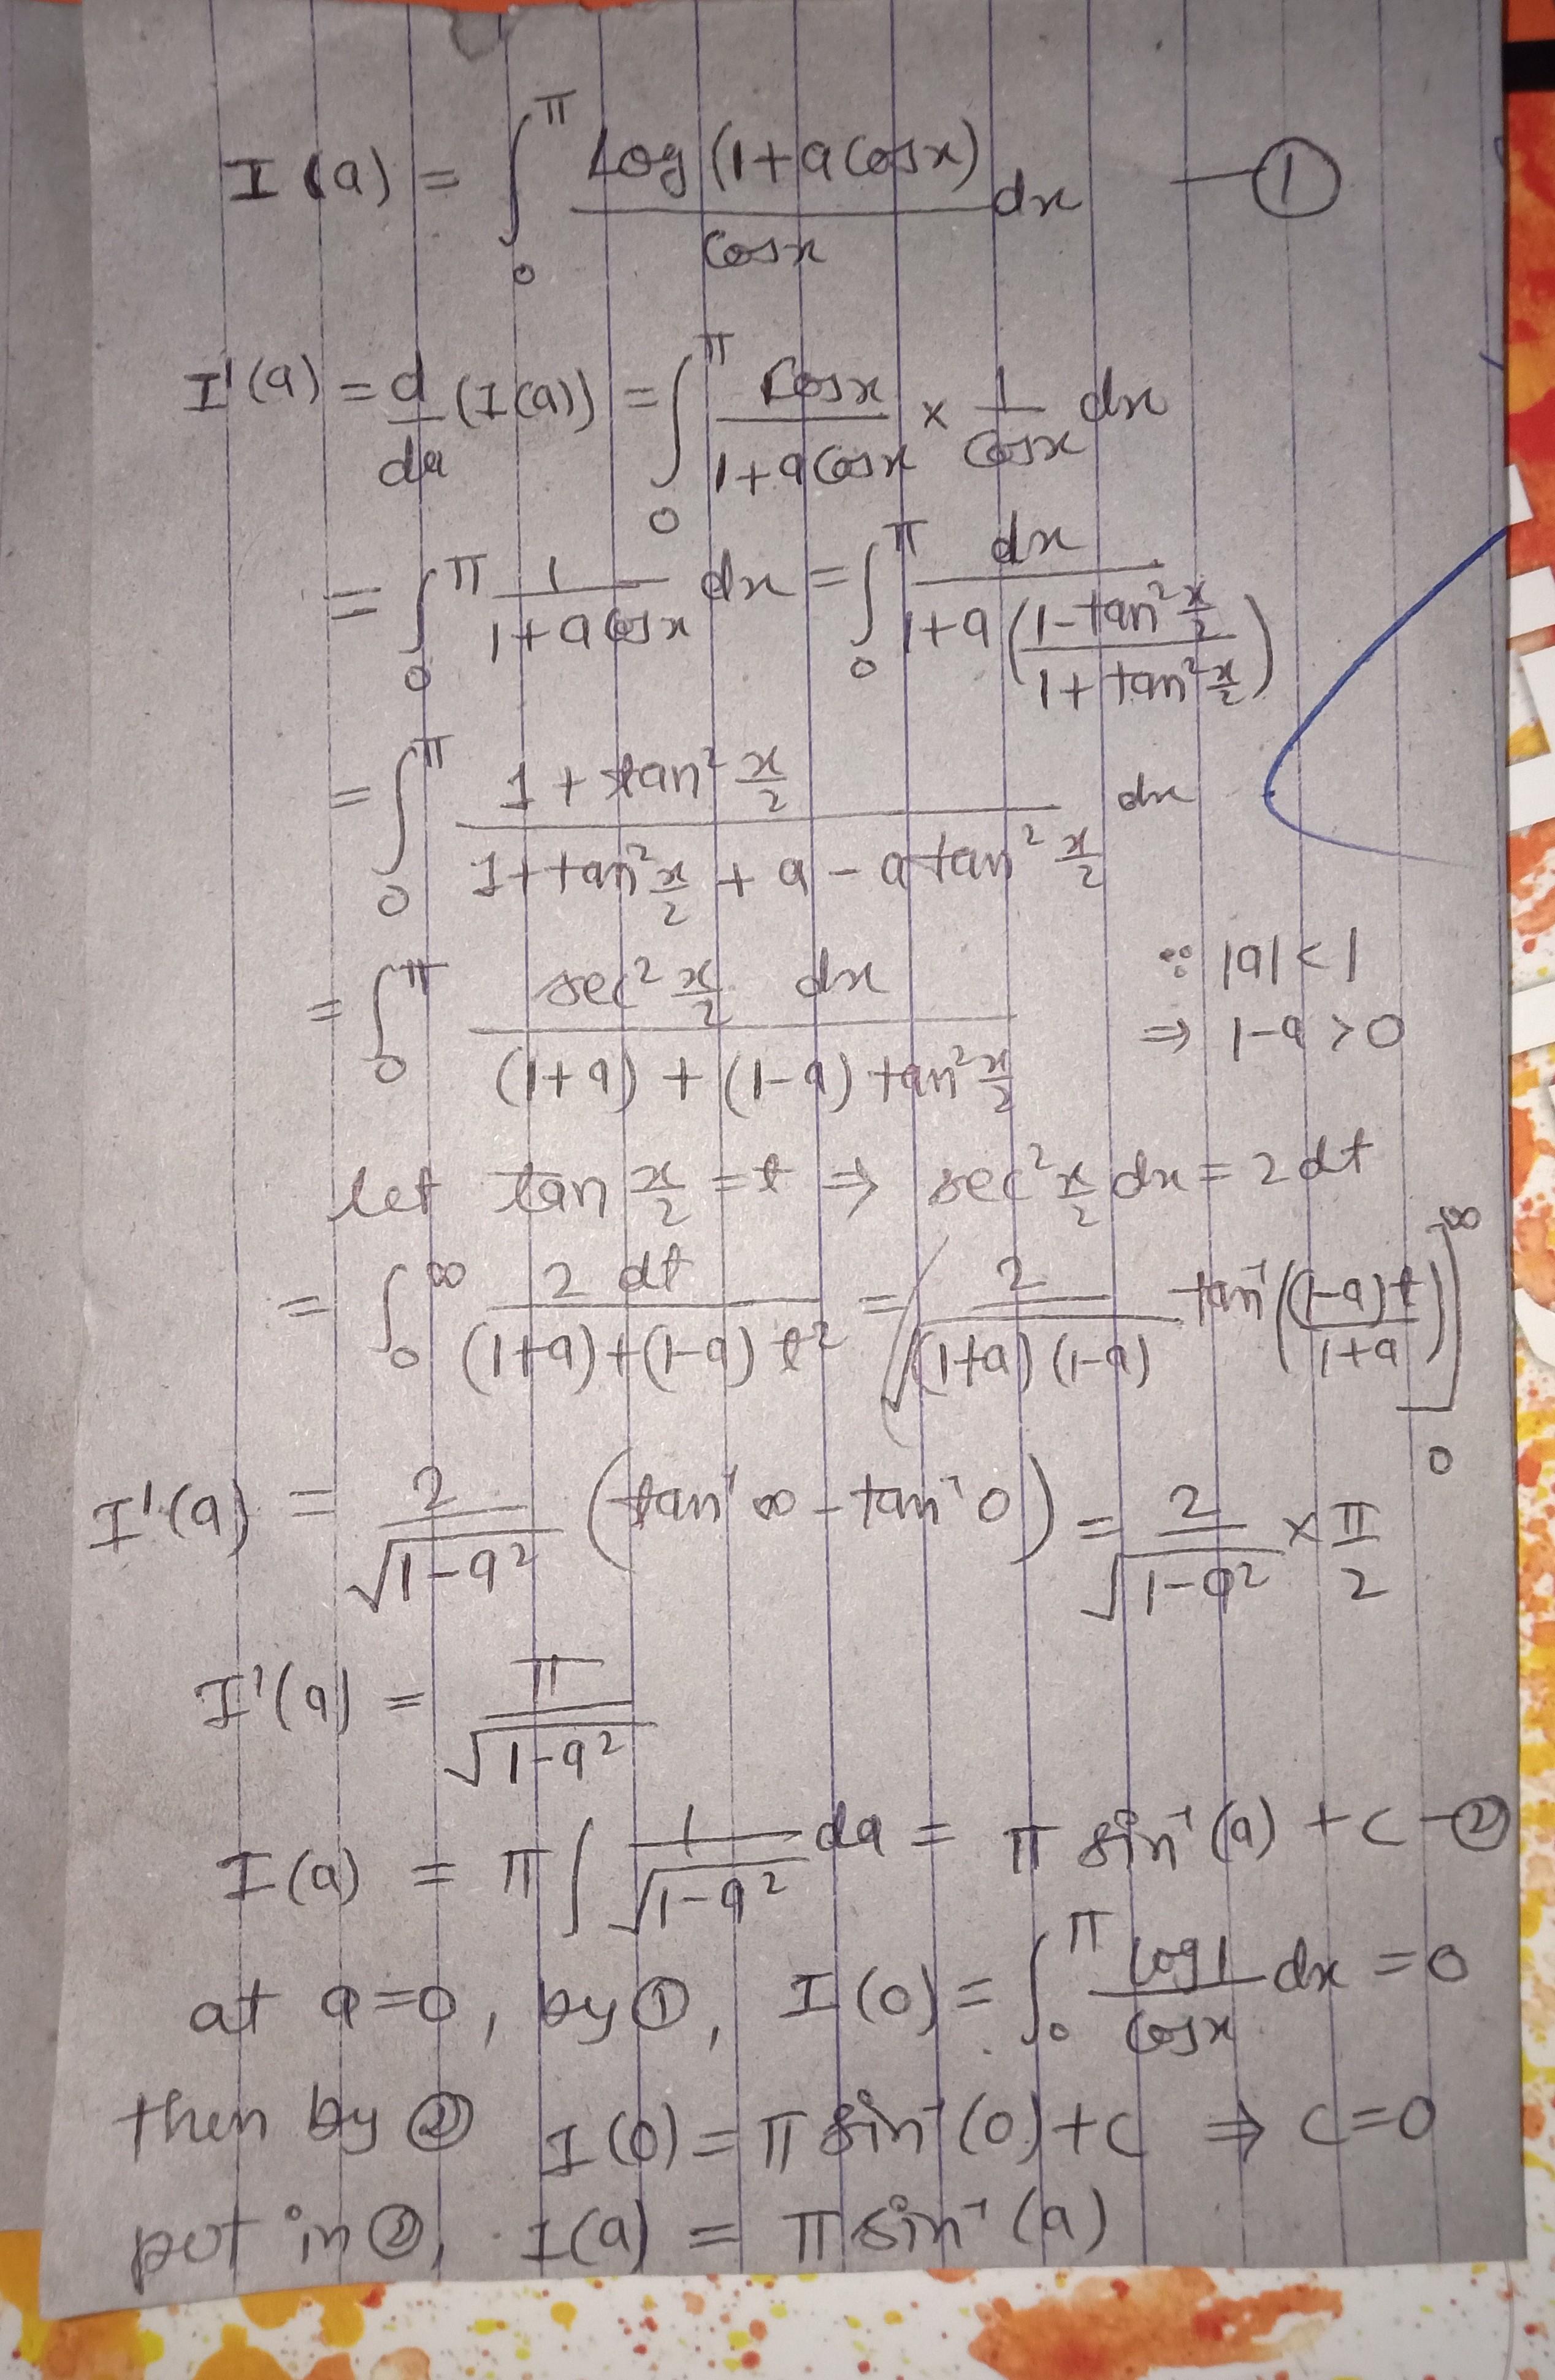 I(a) = ∫₀^π Log(1+a cosx)/cosx dx —①
I'(a) = d/da (I(a)) = ∫₀^π cosx/(1+a cosx) × 1/cosx dx
= ∫₀^π 1/(1+a cosx) dx = ∫₀^π dx/(1+a((1-tan² x/2)/(1+tan² x/2)))
= ∫₀^π (1+tan² x/2)/(1+tan² x/2 + a - a tan² x/2) dx
= ∫₀^π sec² x/2 dx/((1+a) + (1-a) tan² x/2) ∵ |a| < 1
⇒ 1-a > 0
let tan x/2 = t ⇒ sec² x/2 dx = 2 dt
= ∫₀^∞ 2 dt/((1+a)+(1-a) t²) = 2/√((1+a)(1-a)) tan⁻¹((1-a)t/(1+a))]₀^∞
I'(a) = 2/√(1-a²) (tan⁻¹ ∞ - tan⁻¹ 0) = 2/√(1-a²) × π/2
I'(a) = π/√(1-a²)
I(a) = π ∫ 1/√(1-a²) da = π sin⁻¹(a) + c —②
at a=0, by ①, I(0) = ∫₀^π log1/cosx dx = 0
then by ② I(0) = π sin⁻¹(0)+c ⇒ c=0
put in ②, I(a) = π sin⁻¹(a)